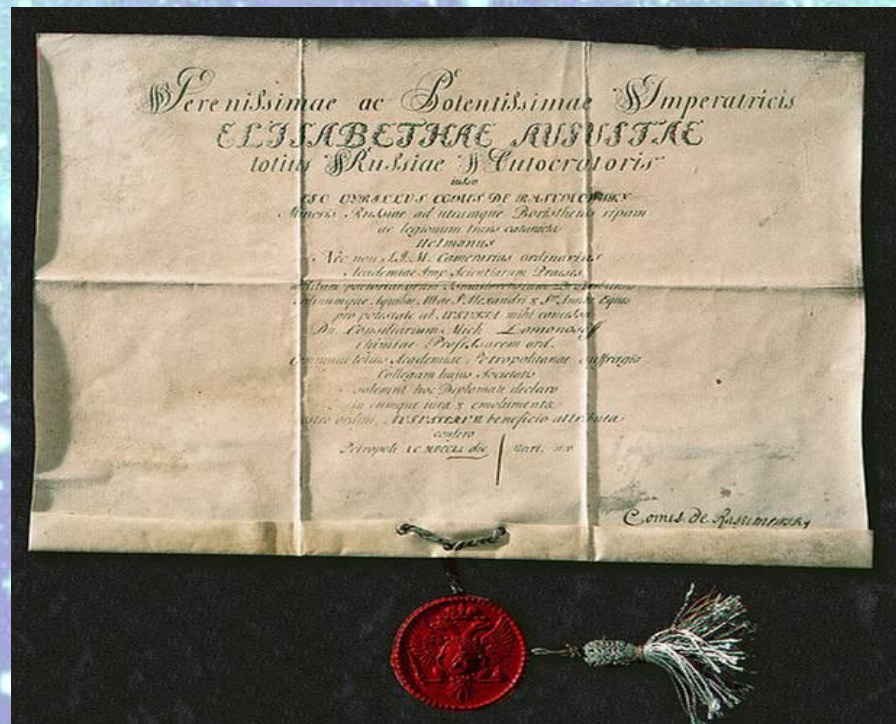 Serenissimae ac Potentissimae Imperatricis
ELISABETHAE AUGUSTAE
totius Russiae Autocratoris
iussu
EGO CYRILLUS COMES DE RASUMOWSKY
Minoris Russiae ad utramque Borysthenis ripam
ac legionum trans cataractas
Hetmanus
Nec non S.I.M. Camerarius ordinarius
Academiae Imp. Scientiarum Praeses
Ordinumque Aquilae Albae S. Alexandri & Stae Annae Eques
pro potestate ab AUGUSTA mihi concessa
Dn. Consiliarium Mich. Lomonosoff
Chimiae Professorem ord.
communi totius Academiae Petropolitanae suffragio
Collegam hujus Societatis
solemni hoc Diplomate declaro
in eumque iura & emolumenta
nostro ordini, AUGUSTARUM beneficio attributa
confero
Petropoli
Comes de Rasumowsky